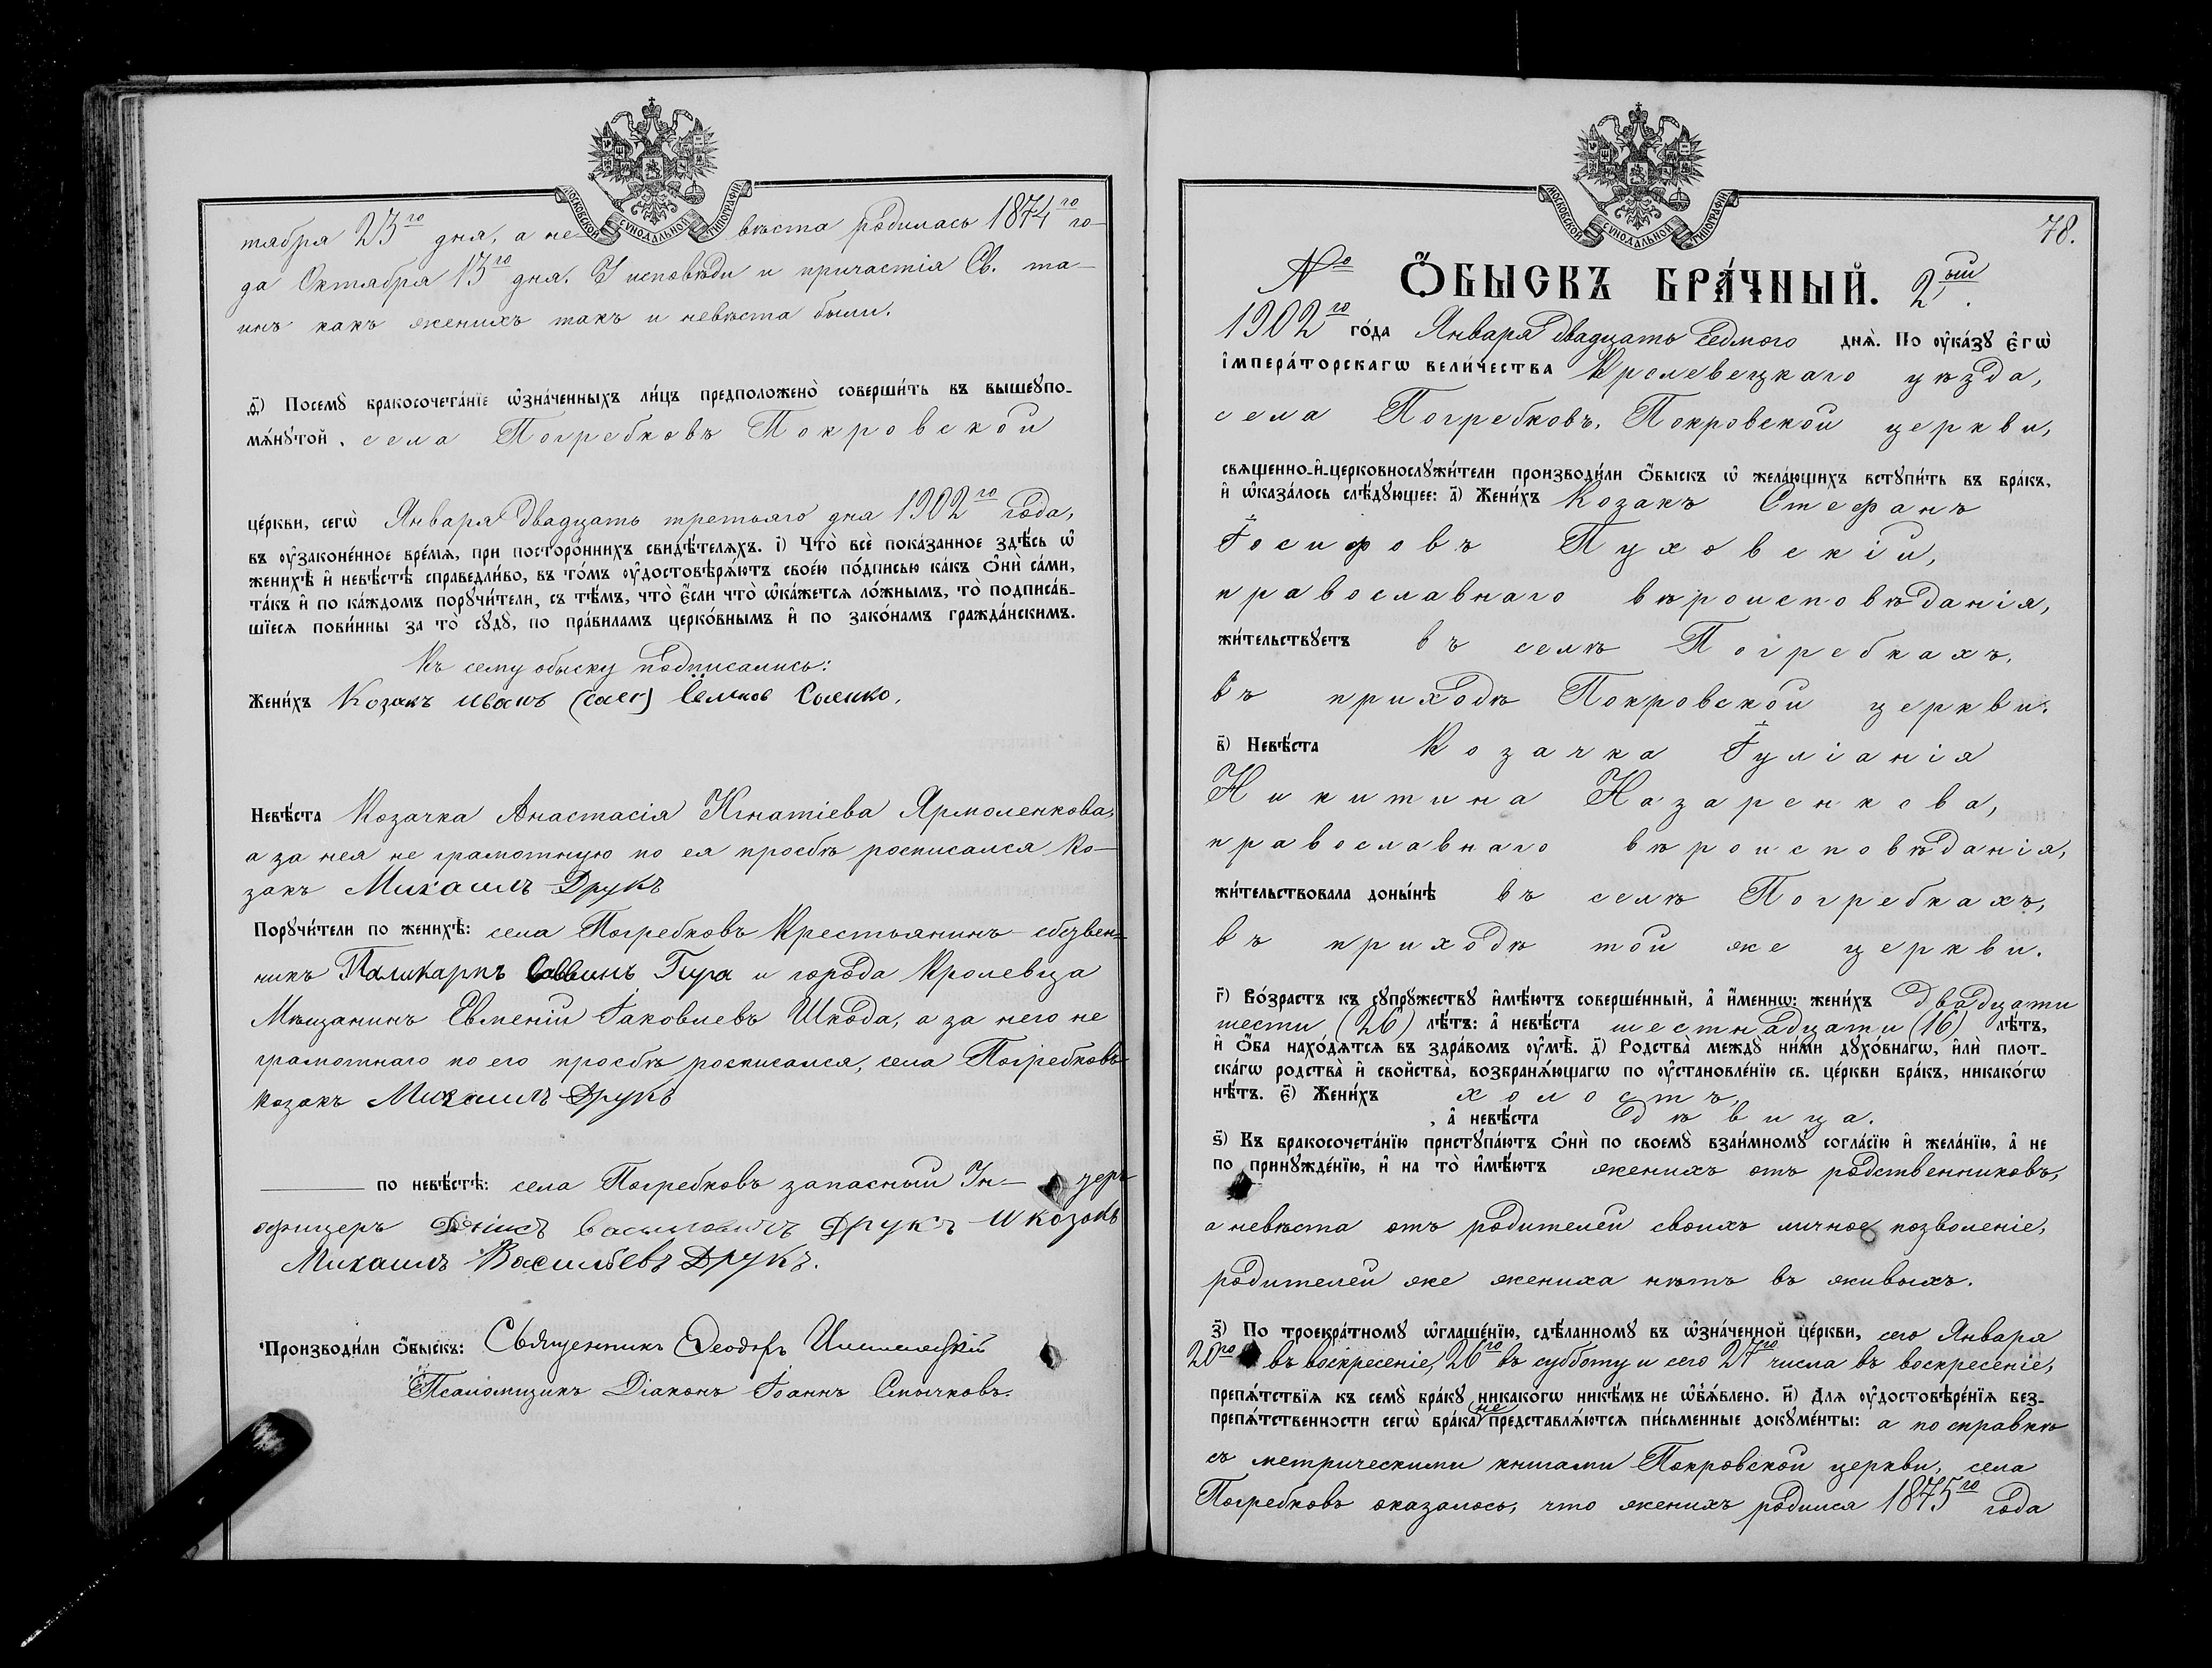 МОСКОВСКОЙ СУНОДАЛЬНОЙ ТИПОГРАФІИ
тября 23го дня, а не вѣста родилась 1874го го-
да Октября 13го дня. У исповѣди и причастія Св. та-
инъ какъ женихъ такъ и невѣста были.
ѳ҃) Посемꙋ бракосочета́нїе ѡ҆зна́ченныхъ ли́цъ предположено̀ соверши́ть въ вышеꙋпо-
мѧ́нꙋтой, села Погребковъ Покровской
це́ркви, сегѡ̀ Января двадцать третьяго дня 1902го года,
въ ᲂу҆законе́нное вре́мѧ, при посторо́ннихъ свидѣ́телѧхъ. і҃) Что̀ всѐ пока́занное здѣ́сь ѡ҆
женихѣ̀ и҆ невѣ́стѣ справедли́во, въ то́мъ ᲂу҆достовѣрѧ́ютъ свое́ю по́дписью ка́къ ѻ҆нѝ са́ми,
та́къ и҆ по ка́ждомъ порꙋчи́тели, съ тѣ́мъ, что̀ є҆́сли что̀ ѡ҆ка́жетсѧ ло́жнымъ, то̀ подписа́в-
шїесѧ пови́нны за то̀ сꙋдꙋ̀, по пра́виламъ церко́внымъ и҆ по зако́намъ гражда́нскимъ.
Къ сему обыску подписались:
Жени́хъ Козакъ Иванъ Семіков Соенко.
Невѣ́ста Козачка Анастасія Игнатіева Ярмоленкова,
а за нея не грамотную по ея просьбѣ росписался Ко-
закъ Михаилъ Друкъ
Порꙋчи́тели по женихѣ̀: села Погребковъ Крестьянинъ-собствен-
никъ Паликарпъ Саввинъ Гира и города Кролевца
Мѣщанинъ Евменій Іаковлевъ Шкода, а за него не
грамотнаго по его просьбѣ росписался, села Погребковъ
козакъ Михаилъ Друкъ
по невѣ́стѣ: села Погребковъ запасный Ун- черъ
офицеръ Денисъ Василіевичъ Друкъ и козакъ
Михаилъ Васильевъ Друкъ.
Производи́ли ѻ҆́быскъ: Священникъ Ѳеодоръ
Псаломщикъ Діаконъ Іоаннъ Смычковъ.
МОСКОВСКОЙ СУНОДАЛЬНОЙ ТИПОГРАФІИ
78.
№ Ѻ҆́БЫСКЪ БРА́ЧНЫЙ. 2ый.
1902го го́да Января двадцать седмого днѧ̀. По ᲂу҆ка́зꙋ є҆гѡ̀
і҆мпера́торскагѡ вели́чества Кролевецкаго уѣзда,
села Погребковъ, Покровской церкви,
свѧщенно-и҆-церковнослꙋжи́тели производи́ли ѻ҆́быскъ ѡ҆ жела́ющихъ встꙋпи́ть въ бра́къ,
и҆ ѡ҆каза́лось слѣ́дꙋющее: а҃) Жени́хъ Козакъ Стефанъ
Іосифовъ Пуховскій,
православнаго вѣроисповѣданія,
жи́тельствꙋетъ въ селѣ Погребкахъ,
въ приходѣ Покровской церкви.
в҃) Невѣ́ста Козачка Іуліанія
Никитина Назаренкова,
православнаго вѣроисповѣданія,
жи́тельствовала доны́нѣ въ селѣ Погребкахъ,
въ приходѣ той же церкви.
г҃) Во́зрастъ къ сꙋпрꙋ́жествꙋ и҆мѣ́ютъ соверше́нный, а҆ и҆́меннѡ: жени́хъ двадцати
шести (26) лѣ́тъ: а҆ невѣ́ста шестнадцати (16) лѣ́тъ,
и҆ ѻ҆́ба нахо́дѧтсѧ въ здра́вомъ ᲂу҆мѣ̀. д҃) Родства̀ междꙋ̀ ни́ми дꙋхо́внагѡ, и҆лѝ плот-
ска́гѡ родства̀ и҆ сво́йства̀, возбранѧ́ющагѡ по ᲂу҆становле́нїю св. це́ркви бра́къ, никако́гѡ
нѣ́тъ. є҃) Жени́хъ холостъ,
, а҆ невѣ́ста дѣвица.
ѕ҃) Къ бракосочета́нїю пристꙋпа́ютъ ѻ҆нѝ по своемꙋ̀ взаи́мномꙋ согла́сїю и҆ жела́нїю, а҆ не
по принꙋжде́нїю, и҆ на то̀ и҆мѣ́ютъ женихъ отъ родственниковъ,
а невѣста отъ родителей своихъ личное позволеніе,
родителей же жениха нѣтъ въ живыхъ.
з҃) По троекра́тномꙋ ѡ҆глаше́нїю, сдѣ́ланномꙋ въ ѡ҆зна́ченной це́ркви, сего Января
20го въ воскресеніе, 26го въ субботу и сего 27го числа въ воскресеніе,
препѧ́тствїѧ къ семꙋ̀ бра́кꙋ никако́гѡ никѣ́мъ не ѡ҆б̾ѧ́влено. и҃) Для ᲂу҆достовѣре́нїѧ без-
препѧ́тственности сегѡ̀ бра́ка не представлѧ́ютсѧ пи́сьменные докꙋме́нты: а по справкѣ
съ метрическими книгами Покровской церкви, села
Погребковъ оказалось, что женихъ родился 1875го года